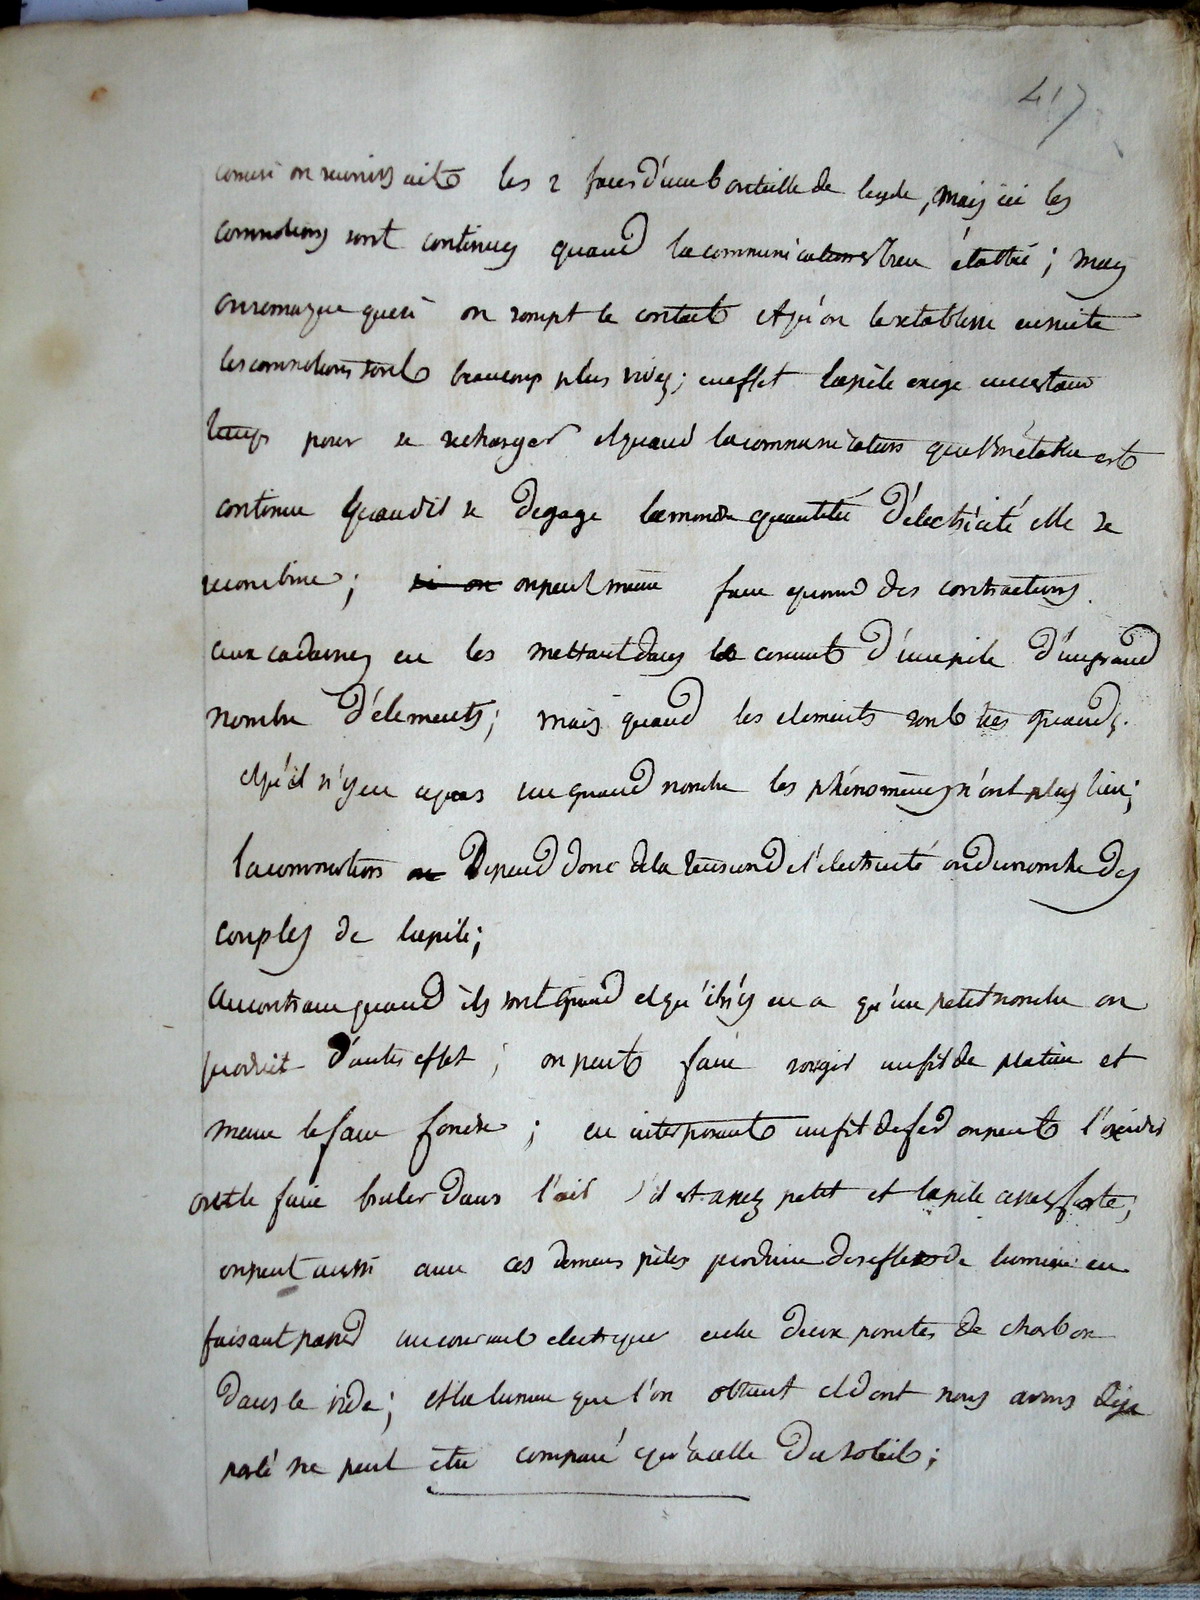 417
comme si on reunissait les 2 faces d'une bouteille de leyde, mais ici les
commotions sont continues quand la communication est bien établie; mais
on remarque que si on rompt le contact et qu'on le retablisse ensuite
les commotions sont beaucoup plus vives; en effet la pile exige un certain
temps pour se recharger et quand la communication est
continue quand il se degage la moindre quantité d'électricité elle se
recombine; si on on peut meme faire eprouver des contractions
aux cadavres en les mettant dans le courant d'une pile d'un grand
nombre d'élements; mais quand les elements sont tres grands
et qu'il n'y en a pas un grand nombre les phénomènes n'ont plus lieu;
la commotion depend donc de la tension de l'électricité ou du nombre des
couples de la pile;
Au contraire quand ils sont grand et qu'il n'y en a qu'un petit nombre on
produit d'autes effet; on peut faire rougir un fil de platine et
meme le faire fondre; en interposant un fil de fer on peut l'oxider
et le faire bruler dans l'air s'il est assez petit et la pile assez forte;
on peut aussi avec ces derniers piles produire des effets de lumiere en
faisant passer un courant electrique entre deux pointes de charbon
dans le vide; et la lumiere que l'on obtient et dont nous avons deja
parlé ne peut etre comparé qu'à celle du soleil;